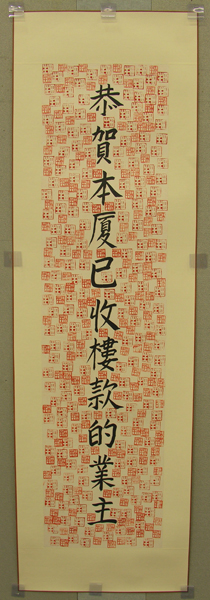 恭賀本廈已收樓款的業主